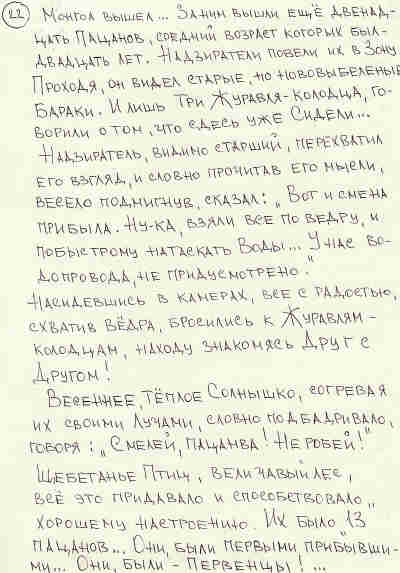 22 Монгол вышел... За ним вышли ещё двенад-
цать пацанов, средний возраст которых был-
двадцать лет. Надзиратели повели их в Зону
Проходя, он видел старые, но нововыбеленые
бараки. И лишь Три Журавля-колодца, го-
ворили о том, что сдесь уже Сидели...
Надзиратель, видимо старший, перехватил
его взгляд, и словно прочитав его мысли,
весело подмигнув, сказал: „Вот и смена
прибыла. Ну-ка, взяли все по ведру, и
побыстрому натаскать Воды... У нас во-
допровода, не придусмотрено."
Насидевшись в камерах, все с радостью,
схватив вёдра, бросились к Журавлям-
колодцам, находу знакомясь Друг с
Другом!
Весеннее, Тёплое Солнышко, согревая
их своими Лучами, словно подбадривало,
говоря: „Смелей, пацанва! Не робей!"
Щебетанье Птиц, величавый лес,
всё это придавало и способствовало
хорошему настроению. Их было „13
пацанов... Они, были первыми прибывши-
ми... Они, были - первенцы!...